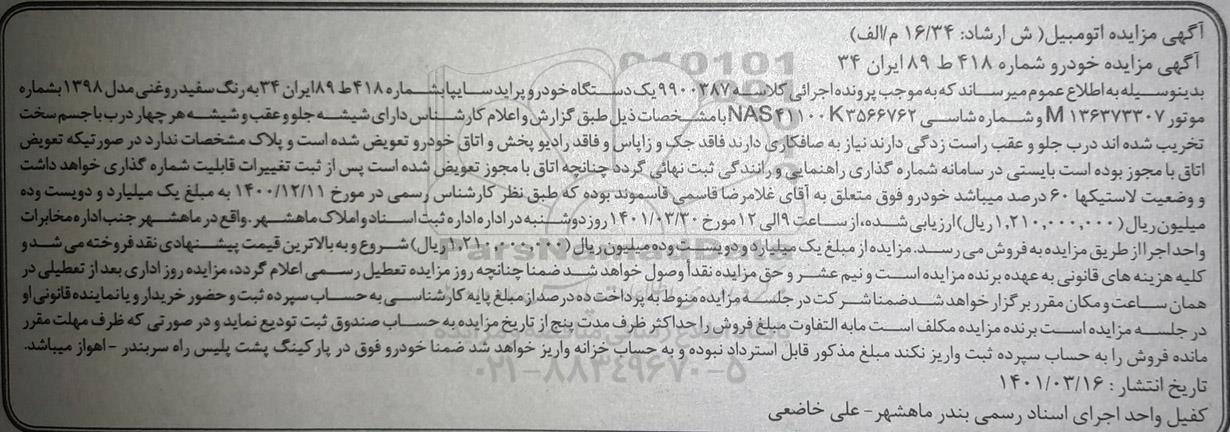 آگهی مزایده اتومبیل( ش ارشاد: ۱۶/۳۴ م/الف)
آگهی مزایده خودرو شماره ۴۱۸ ط ۸۹ ایران ۳۴
بدینوسیله به اطلاع عموم میرساند که به موجب پرونده اجرائی کلاسه ۹۹۰۰۳۸۷ یک دستگاه خودرو پراید سایپا بشماره ۴۱۸ ط ۸۹ ایران ۳۴ به رنگ سفید روغنی مدل ۱۳۹۸ بشماره
موتور M ۱۳۶۳۷۳۳۰۷ و شماره شاسی NAS۴۱۱۰۰K۳۵۶۶۷۶۲ بامشخصات ذیل طبق گزارش و اعلام کارشناس دارای شیشه جلو و عقب و شیشه هر چهار درب با جسم سخت
تخریب شده اند درب جلو و عقب راست زدگی دارند نیاز به صافکاری دارند فاقد جک و زاپاس و فاقد رادیو پخش و اتاق خودرو تعویض شده است و پلاک مشخصات ندارد در صورتیکه تعویض
اتاق با مجوز بوده است بایستی در سامانه شماره گذاری راهنمایی و رانندگی ثبت نهائی گردد چنانچه اتاق با مجوز تعویض شده است پس از ثبت تغییرات قابلیت شماره گذاری خواهد داشت
و وضعیت لاستیکها ۶۰ درصد میباشد خودرو فوق متعلق به آقای غلامرضا قاسمی قاسموند بوده که طبق نظر کارشناس رسمی در مورخ ۱۴۰۰/۱۲/۱۱ به مبلغ یک میلیارد و دویست وده
میلیون ریال (۱,۲۱۰,۰۰۰,۰۰۰ ریال) ارزیابی شده، از ساعت ۹ الی ۱۲ مورخ ۱۴۰۱/۰۳/۳۰ روز دوشنبه در اداره اداره ثبت اسناد و املاک ماهشهر .واقع در ماهشهر جنب اداره مخابرات
واحد اجرا از طریق مزایده به فروش می رسد. مزایده از مبلغ یک میلیارد و دویست وده میلیون ریال (۱,۲۱۰,۰۰۰,۰۰۰ ریال) شروع و به بالاترین قیمت پیشنهادی نقد فروخته می شد و
کلیه هزینه های قانونی به عهده برنده مزایده است و نیم عشر و حق مزایده نقداً وصول خواهد شد ضمنا چنانچه روز مزایده تعطیل رسمی اعلام گردد، مزایده روز اداری بعد از تعطیلی در
همان ساعت و مکان مقرر برگزار خواهد شد ضمنا شرکت در جلسه مزایده منوط به پرداخت ده درصد از مبلغ پایه کارشناسی به حساب سپرده ثبت و حضور خریدار و یا نماینده قانونی او
در جلسه مزایده است برنده مزایده مکلف است مابه التفاوت مبلغ فروش را حداکثر ظرف مدت پنج از تاریخ مزایده به حساب صندوق ثبت تودیع نماید و در صورتی که ظرف مهلت مقرر
مانده فروش را به حساب سپرده ثبت واریز نکند مبلغ مذکور قابل استرداد نبوده و به حساب خزانه واریز خواهد شد ضمنا خودرو فوق در پارکینگ پشت پلیس راه سربندر -اهواز میباشد.
تاریخ انتشار : ۱۴۰۱/۰۳/۱۶
کفیل واحد اجرای اسناد رسمی بندر ماهشهر- علی خاضعی
ParsNamadData
۰۲۱-۸۸۳۴۹۶۷۰-۵